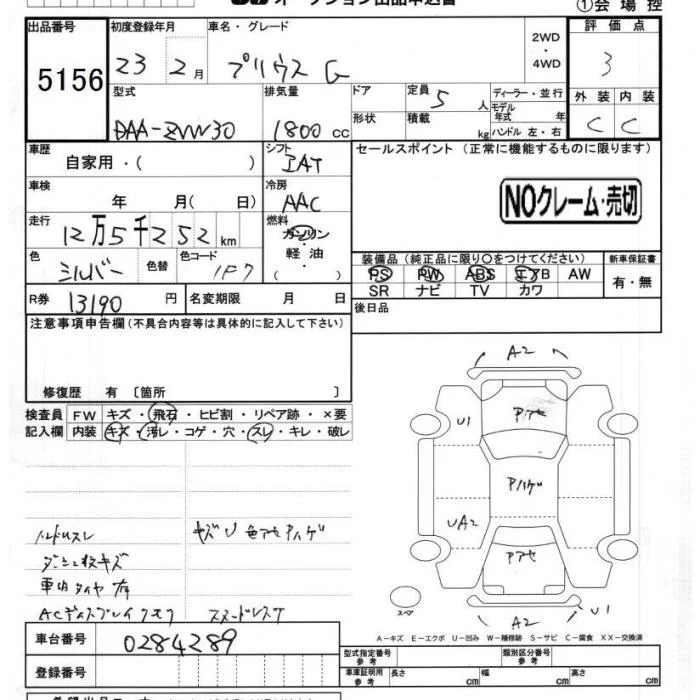 オークション出品申込書 ①会場控
出品番号 5156
初度登録年月 23 2月
車名・グレード プリウス G
2WD ・ 4WD
評価点 3
型式 DAA-ZVW30
排気量 1800 cc
ドア 形状
定員 5 人
積載 kg
ディーラー・並行
モデル年式 年
ハンドル 左・右
外装 内装
C C
車歴 自家用・( )
シフト IAT
セールスポイント (正常に機能するものに限ります)
車検 年 月( 日)
冷房 AAC
NOクレーム・売切
走行 12万5千252 km
燃料 ガソリン・軽油・( )
色 シルバー 色替
色コード 1F7
装備品 (純正品に限り○をつけてください)
PS PW ABS エアB AW
SR ナビ TV カワ
新車保証書 有・無
R券 13190 円
名変期限 月 日
後日品
注意事項申告欄(不具合内容等は具体的に記入して下さい)
修復歴 有〔箇所 〕
検査員 FW キズ・飛石・ヒビ割・リペア跡・×要
記入欄 内装 キズ・汚レ・コゲ・穴・スレ・キレ・破レ
ハンドルスレ
キズU 色アセ Pハゲ
ダッシュ枚キズ
車内タイヤ有
ACディスプレイクモリ
スタッドレス
A2
U1
Pアセ
Pハゲ
UA2
Pアセ
スペア
A2
U1
A-キズ E-エクボ U-凹み W-補修跡 S-サビ C-腐食 XX-交換済
車台番号 0284289
登録番号
型式指定番号 参考
類別区分番号 参考
車庫証明用 参考 長さ cm 幅 cm 高さ cm